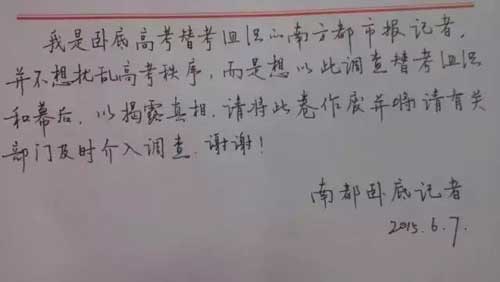 我是卧底高考替考组织的南方都市报记者,
并不想扰乱高考秩序,而是想以此调查替考组织
和幕后,以揭露真相,请将此卷作废并将请有关
部门及时介入调查.谢谢!
南都卧底记者
2015.6.7.